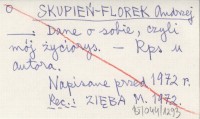 SKUPIEŃ-FLOREK Andrzej
—. Dane o sobie, czyli
mój życiorys. – Rps u
autora.
Napisane przed 1972 r.
Rec.: ZIĘBA M. 1972.